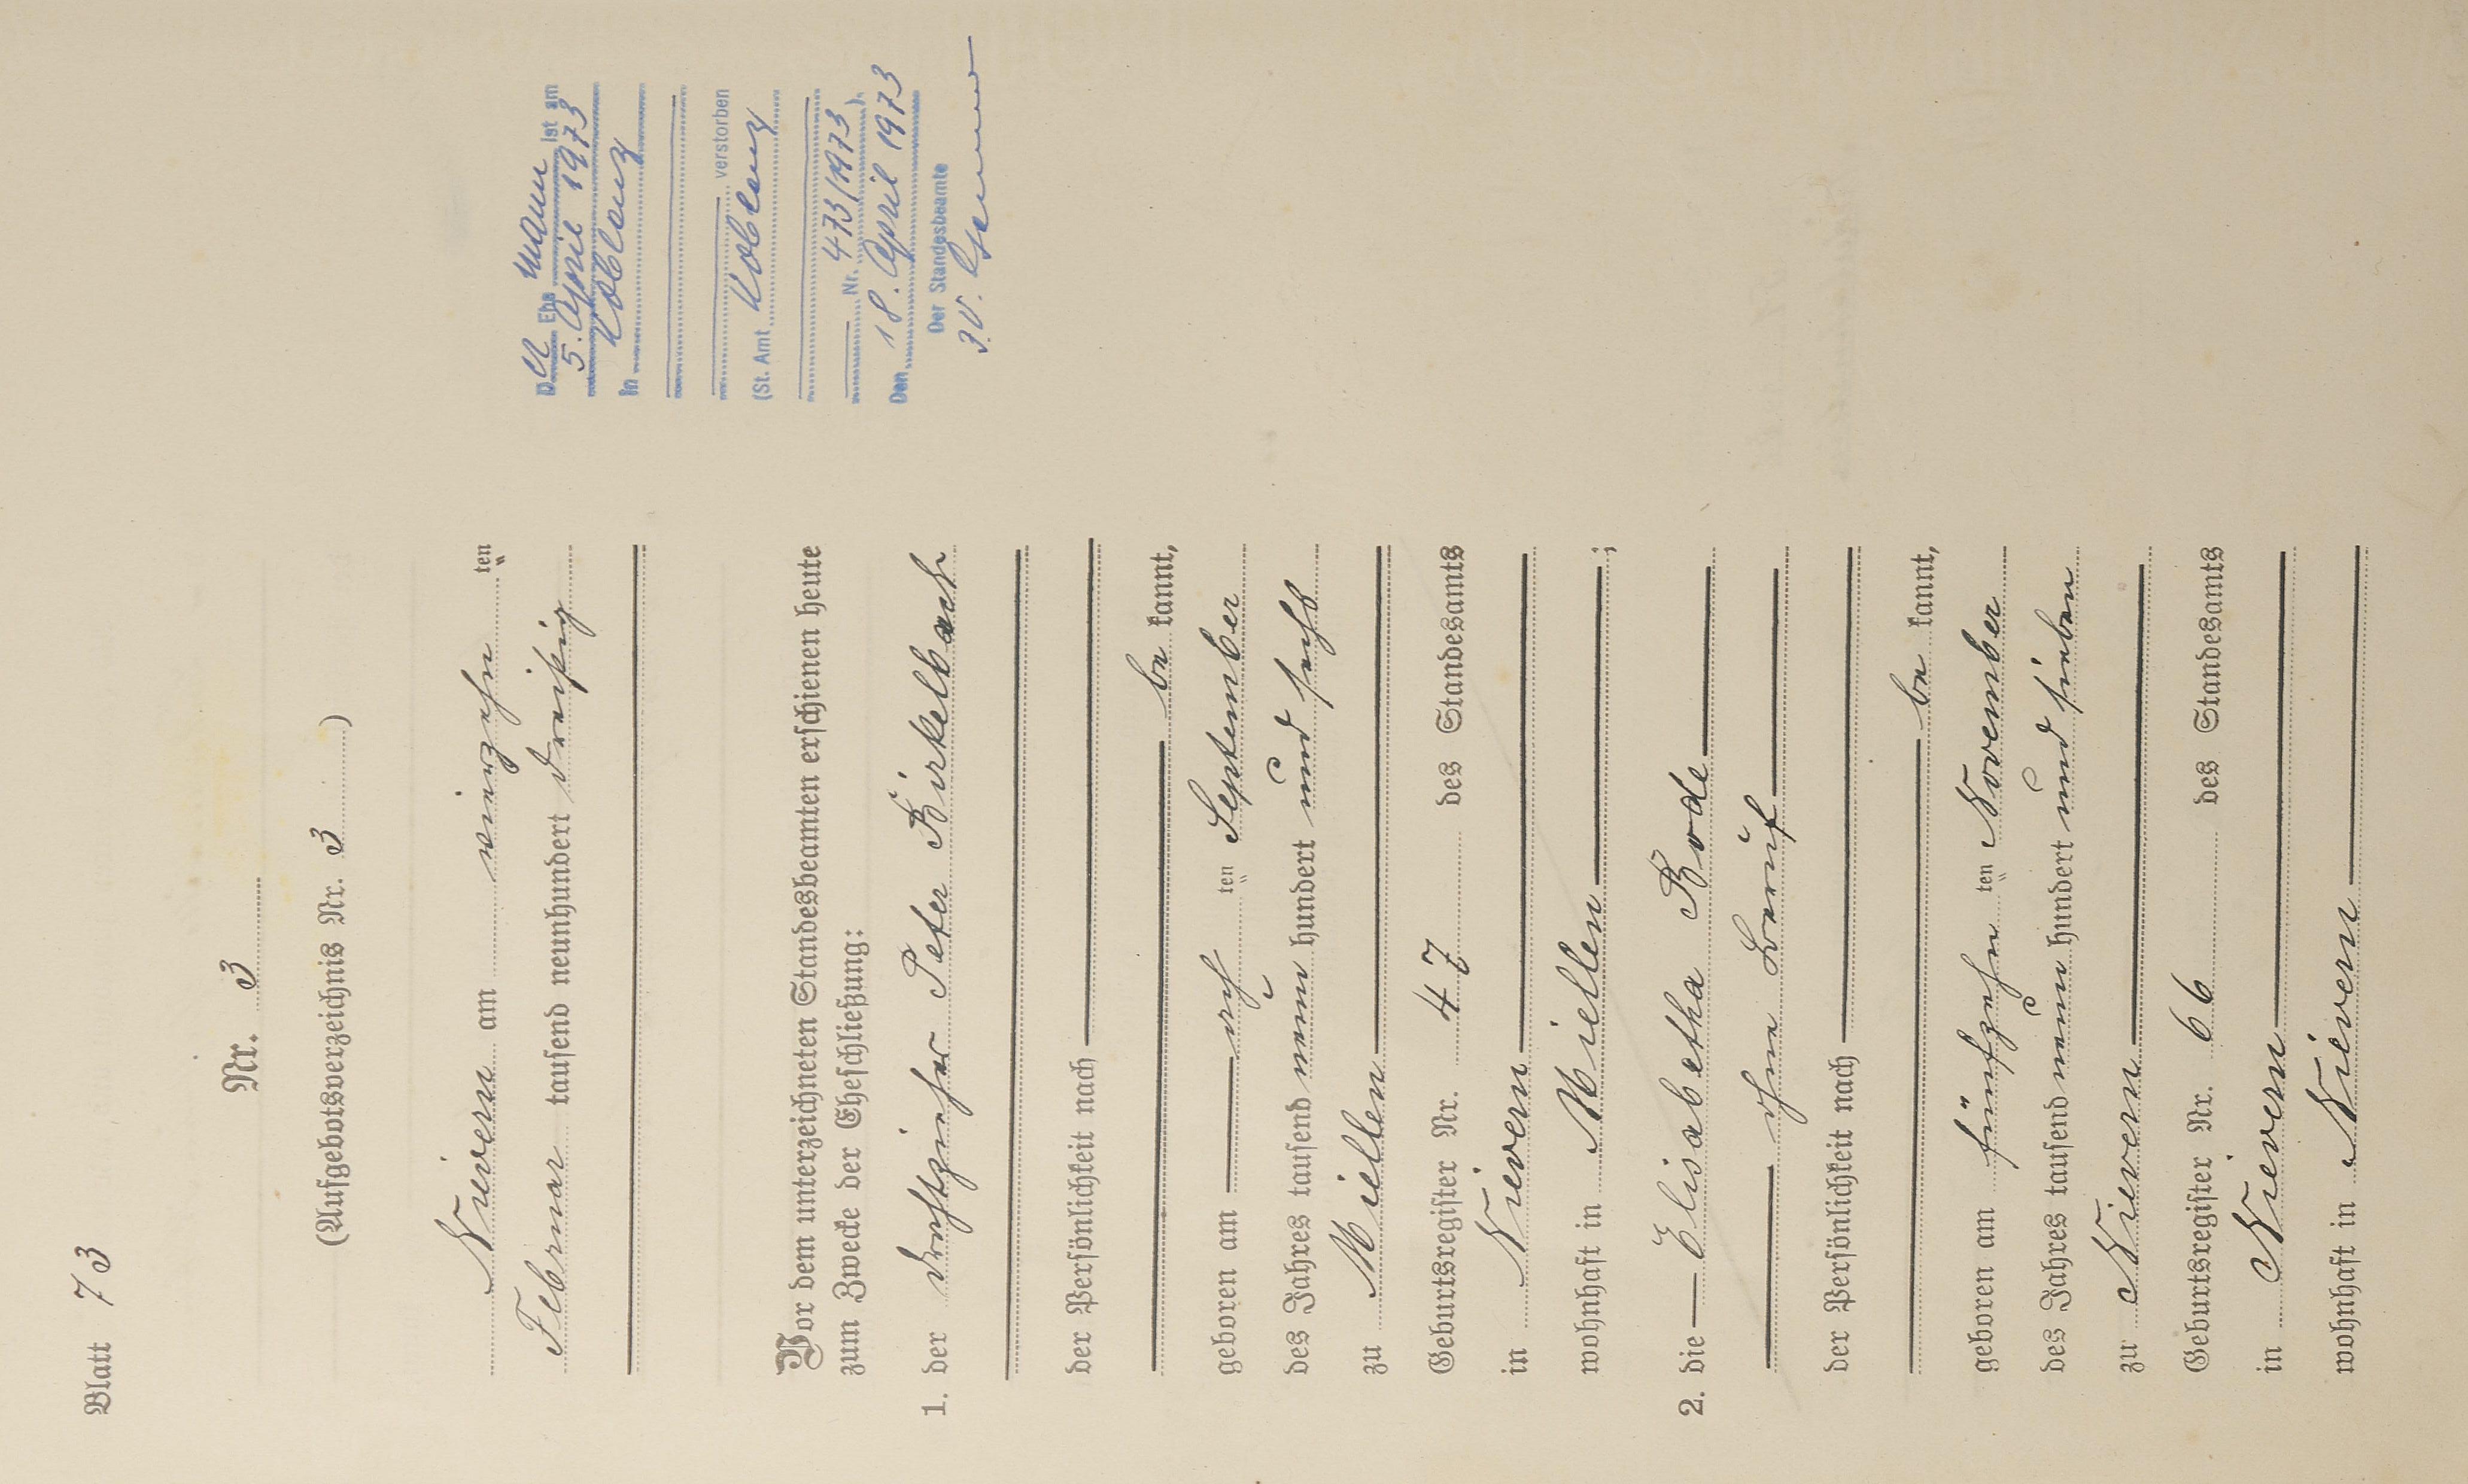 Blatt 73
Nr. 3
(Aufgebotsverzeichnis Nr. 3)
Nievern am vierzehn ten
Februar tausend neunhundert dreißig
Vor dem unterzeichneten Standesbeamten erschienen heute
zum Zwecke der Eheschließung:
1. der Drahtzieher Peter Birkelbach
der Persönlichkeit nach
be kannt,
geboren am acht ten September
des Jahres tausend neun hundert und sechs
zu Miellen
Geburtsregister Nr. 47 des Standesamts
in Nievern
wohnhaft in Miellen ;
2. die Elisabetha Bode
ohne Beruf
der Persönlichkeit nach
be kannt,
geboren am fünfzehn ten November
des Jahres tausend neun hundert und sieben
zu Nievern
Geburtsregister Nr. 66 des Standesamts
in Nievern
wohnhaft in Nievern
Der Ehe mann ist am
5. April 1973
in Koblenz
verstorben
(St. Amt Koblenz
Nr. 473/1973).
Den 18. April 1973
Der Standesbeamte